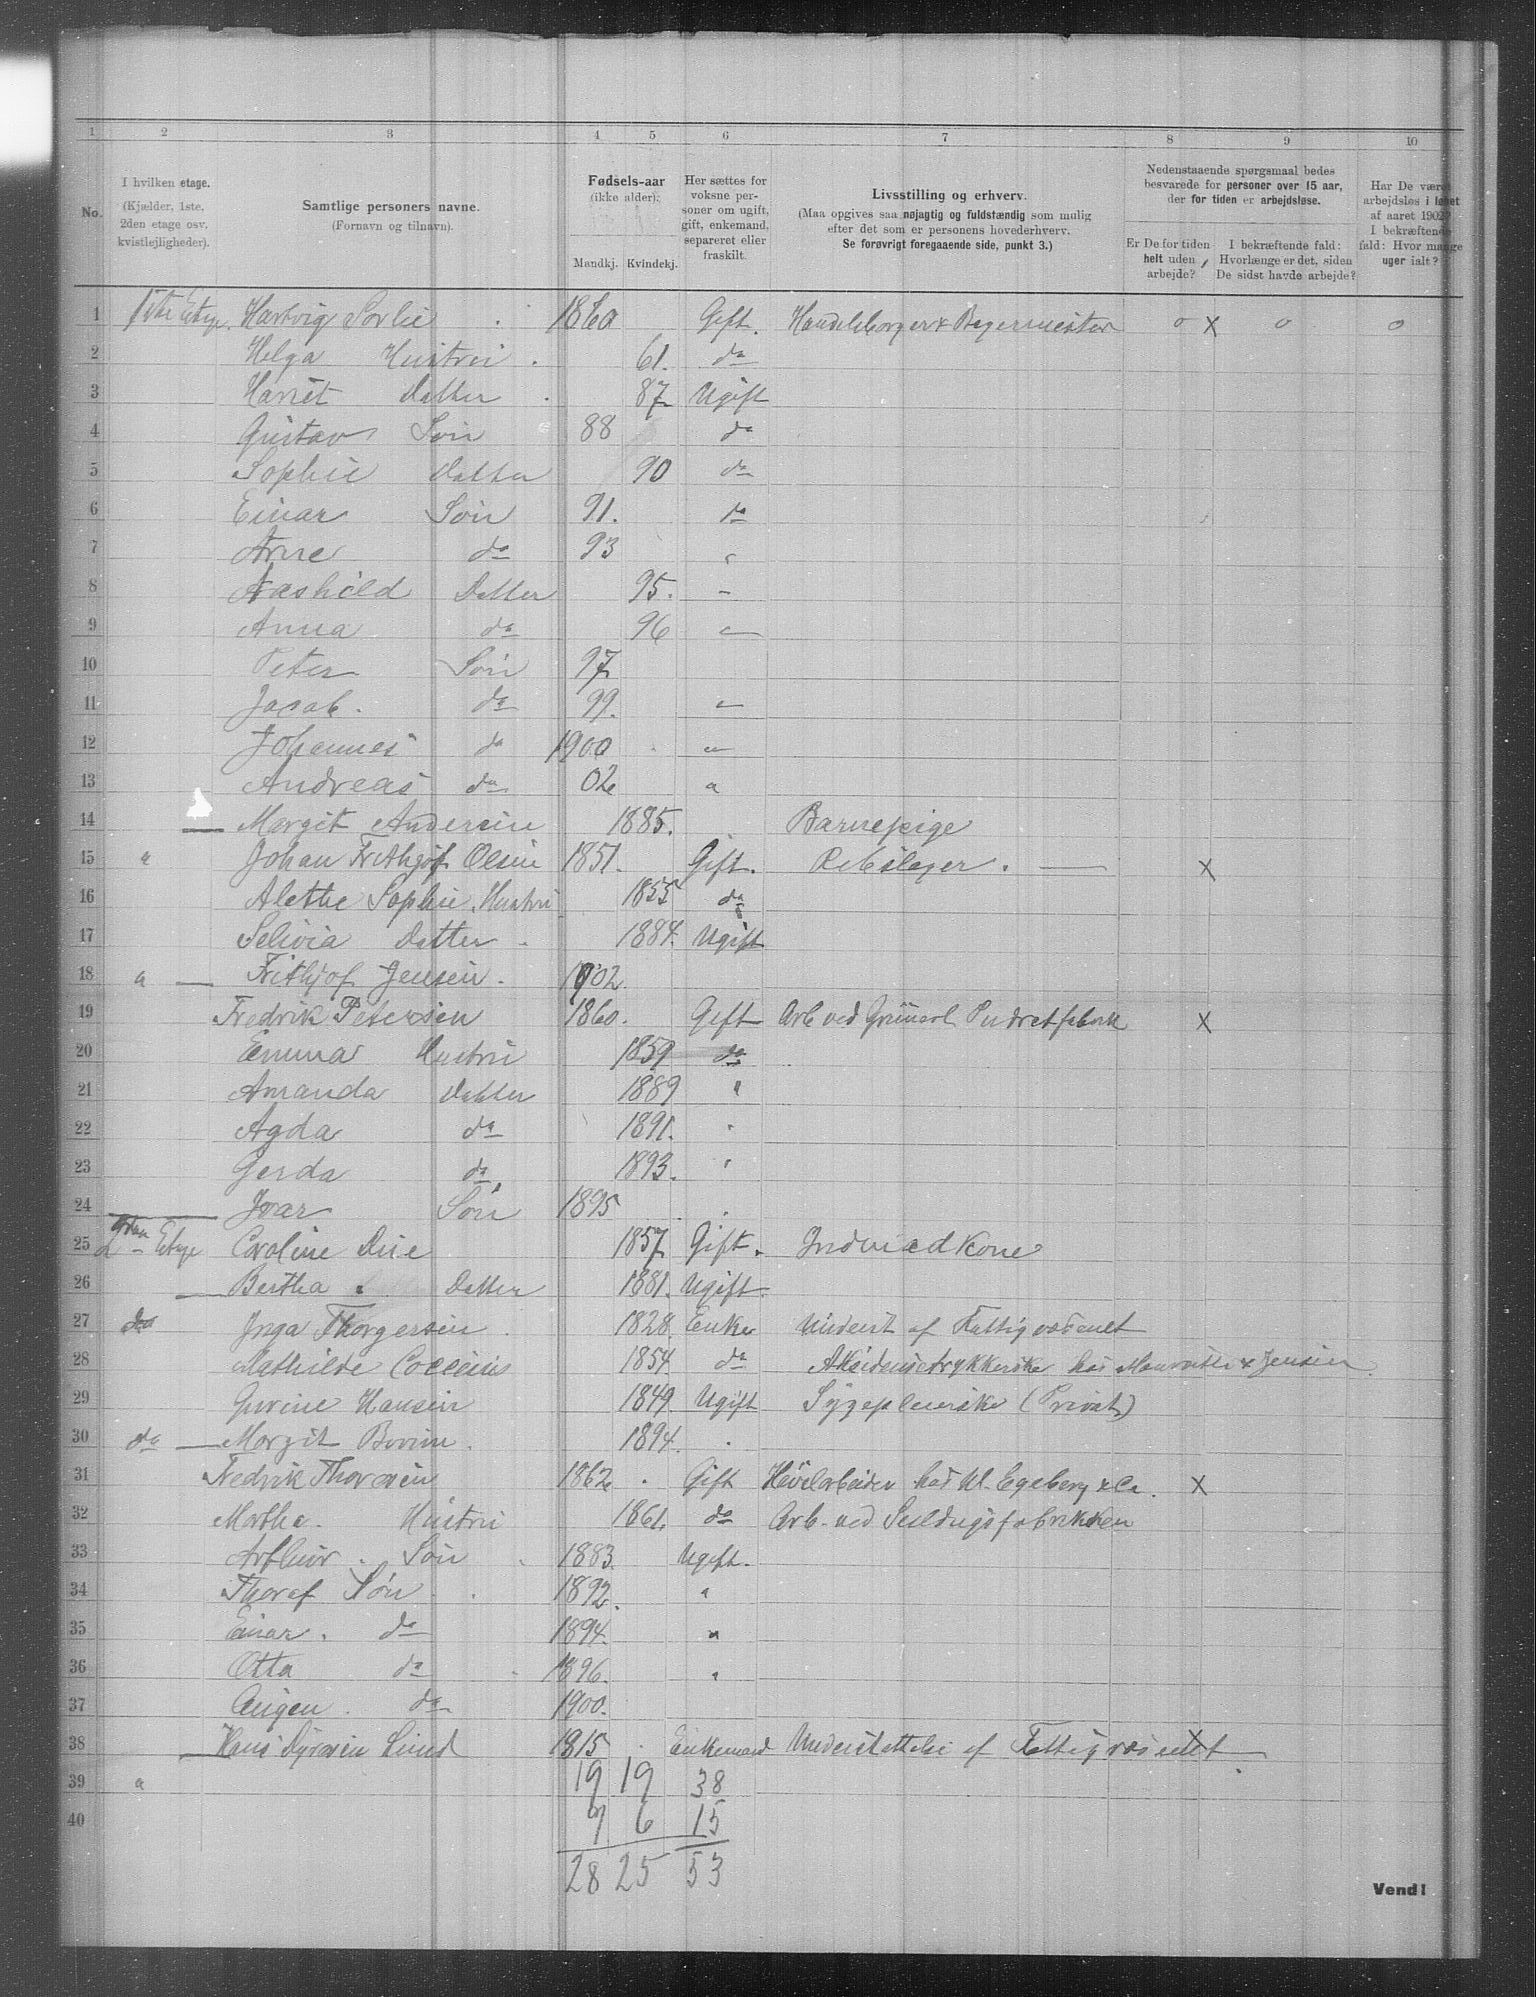 1 2 3 4 5 6 7 8 9 10
No.
I hvilken etage.
(Kjælder, 1ste,
2den etage osv.
kvistlejligheder).
Samtlige personers navne.
(Fornavn og tilnavn).
Fødsels-aar
(ikke alder).
Mandkj. Kvindekj.
Her sættes for
voksne per-
soner om ugift,
gift, enkemand,
separeret eller
fraskilt.
Livsstilling og erhverv.
(Maa opgives saa nøjagtig og fuldstændig som mulig
efter det som er personens hovederhverv.
Se forøvrigt foregaaende side, punkt 3.)
Nedenstaaende spørgsmaal bedes
besvarede for personer over 15 aar,
der for tiden er arbejdsløse.
Er De for tiden
helt uden
arbejde?
I bekræftende fald:
Hvorlænge er det, siden
De sidst havde arbejde?
Har De været
arbejdsløs i løbet
af aaret 1902?
I bekræftende
fald: Hvor mange
uger ialt?
1 1ste Etage. Hartvig Sørlie 1860 Gift. Handelsborger & Bagermester o x o o
2 Helga Hustru 61. do
3 Harriet Datter 87 Ugift
4 Gustav Søn 88 do
5 Sophie Datter 90 do
6 Einar Søn 91. do
7 Arne do 93 "
8 Aashild Datter 95. "
9 Anna do 96 "
10 Peter Søn 97
11 Jacob. do 99. "
12 Johannes do 1900 "
13 Andreas do 02 "
14 Margit Andersen 1885. Barnepige
15 " Johan Frithjof Olsen 1851. Gift. Rebslager. x
16 Alethe Sophie Hustru 1855 do
17 Selivia Datter 1884. Ugift
18 " Frithjof Jensen. 1902
19 Fredrik Petersen 1860. Gift Arb ved Grünerl. Pudretfabrik x
20 Emma Hustru 1859 do
21 Amanda Datter 1889 "
22 Agda do 1891. "
23 Gerda do 1893. "
24 Ivar Søn 1895
25 2den Etage Caroline Due 1857 Gift. Indviedkone
26 Bertha Datter 1881. Ugift.
27 do Inga Thorgersen 1828 Enke Underst af Fattigvæsenet
28 Mathilde 1854. do Aksidensetrykkerske hos & Jensen
29 Gurine Hansen 1849. Ugift Sygepleierske (Privat)
30 do Margit 1894.
31 Fredrik Thoresen 1862 Gift Høvelarbeider hos W. Egeberg & Co. x
32 Marthe. Hustru 1861. do Arb. ved Sildugsfabrikken
33 Arthur. Søn 1883. Ugift.
34 Thoralf Søn 1892. "
35 Einar. do 1894. "
36 Otto do 1896. "
37 Eugen. do 1900.
38 Hans Lund 1815 Enkemand Understøttelse af Fattigvæsenet x
39 " 19 19 38
40 9 6 15
28 25 53
Vend!